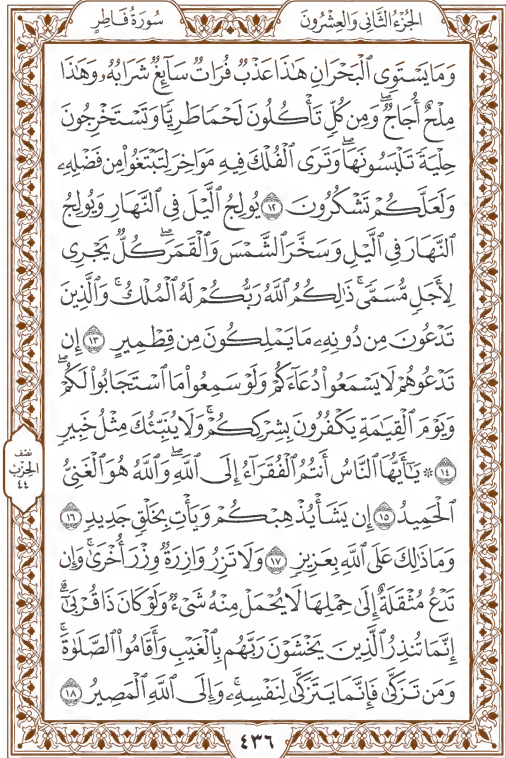 الجُزْءُ الثَّانِي وَالْعِشْرُونَ
سُورَةُ فَاطِرٍ
وَمَا يَسْتَوِى ٱلْبَحْرَانِ هَٰذَا عَذْبٌ فُرَاتٌ سَآئِغٌ شَرَابُهُۥ وَهَٰذَا
مِلْحٌ أُجَاجٌۖ وَمِن كُلٍّ تَأْكُلُونَ لَحْمًا طَرِيًّا وَتَسْتَخْرِجُونَ
حِلْيَةً تَلْبَسُونَهَاۖ وَتَرَى ٱلْفُلْكَ فِيهِ مَوَاخِرَ لِتَبْتَغُوا۟ مِن فَضْلِهِۦ
وَلَعَلَّكُمْ تَشْكُرُونَ ١٢ يُولِجُ ٱلَّيْلَ فِى ٱلنَّهَارِ وَيُولِجُ
ٱلنَّهَارَ فِى ٱلَّيْلِ وَسَخَّرَ ٱلشَّمْسَ وَٱلْقَمَرَۖ كُلٌّ يَجْرِى
لِأَجَلٍ مُّسَمًّىۚ ذَٰلِكُمُ ٱللَّهُ رَبُّكُمْ لَهُ ٱلْمُلْكُۚ وَٱلَّذِينَ
تَدْعُونَ مِن دُونِهِۦ مَا يَمْلِكُونَ مِن قِطْمِيرٍ ١٣ إِن
تَدْعُوهُمْ لَا يَسْمَعُوا۟ دُعَآءَكُمْ وَلَوْ سَمِعُوا۟ مَا ٱسْتَجَابُوا۟ لَكُمْۖ
وَيَوْمَ ٱلْقِيَٰمَةِ يَكْفُرُونَ بِشِرْكِكُمْۚ وَلَا يُنَبِّئُكَ مِثْلُ خَبِيرٍ
١٤ ۞ يَٰٓأَيُّهَا ٱلنَّاسُ أَنتُمُ ٱلْفُقَرَآءُ إِلَى ٱللَّهِۖ وَٱللَّهُ هُوَ ٱلْغَنِىُّ
ٱلْحَمِيدُ ١٥ إِن يَشَأْ يُذْهِبْكُمْ وَيَأْتِ بِخَلْقٍ جَدِيدٍ ١٦
وَمَا ذَٰلِكَ عَلَى ٱللَّهِ بِعَزِيزٍ ١٧ وَلَا تَزِرُ وَازِرَةٌ وِزْرَ أُخْرَىٰۚ وَإِن
تَدْعُ مُثْقَلَةٌ إِلَىٰ حِمْلِهَا لَا يُحْمَلْ مِنْهُ شَىْءٌ وَلَوْ كَانَ ذَا قُرْبَىٰٓۗ
إِنَّمَا تُنذِرُ ٱلَّذِينَ يَخْشَوْنَ رَبَّهُم بِٱلْغَيْبِ وَأَقَامُوا۟ ٱلصَّلَوٰةَۚ
وَمَن تَزَكَّىٰ فَإِنَّمَا يَتَزَكَّىٰ لِنَفْسِهِۦۚ وَإِلَى ٱللَّهِ ٱلْمَصِيرُ ١٨
نصف
الحزب
٤٤
٤٣٦